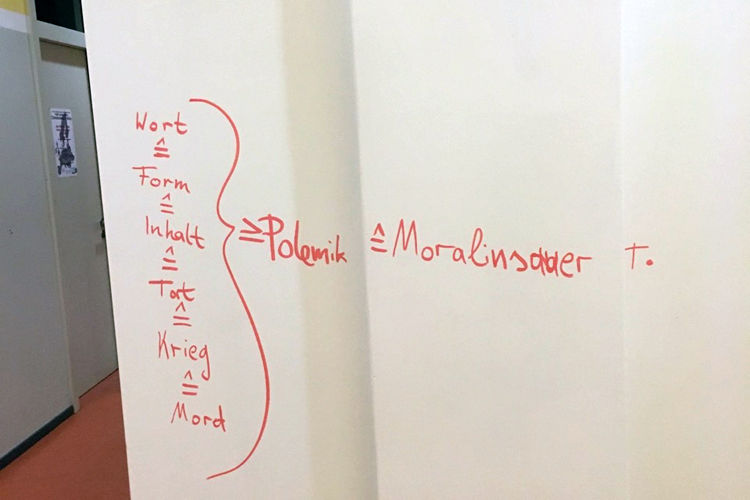 Wort
≙
Form
≙
Inhalt
≙
Tort
≙
Krieg
≙
Mord
≥ Polemik ≙ Moralinsauer T.